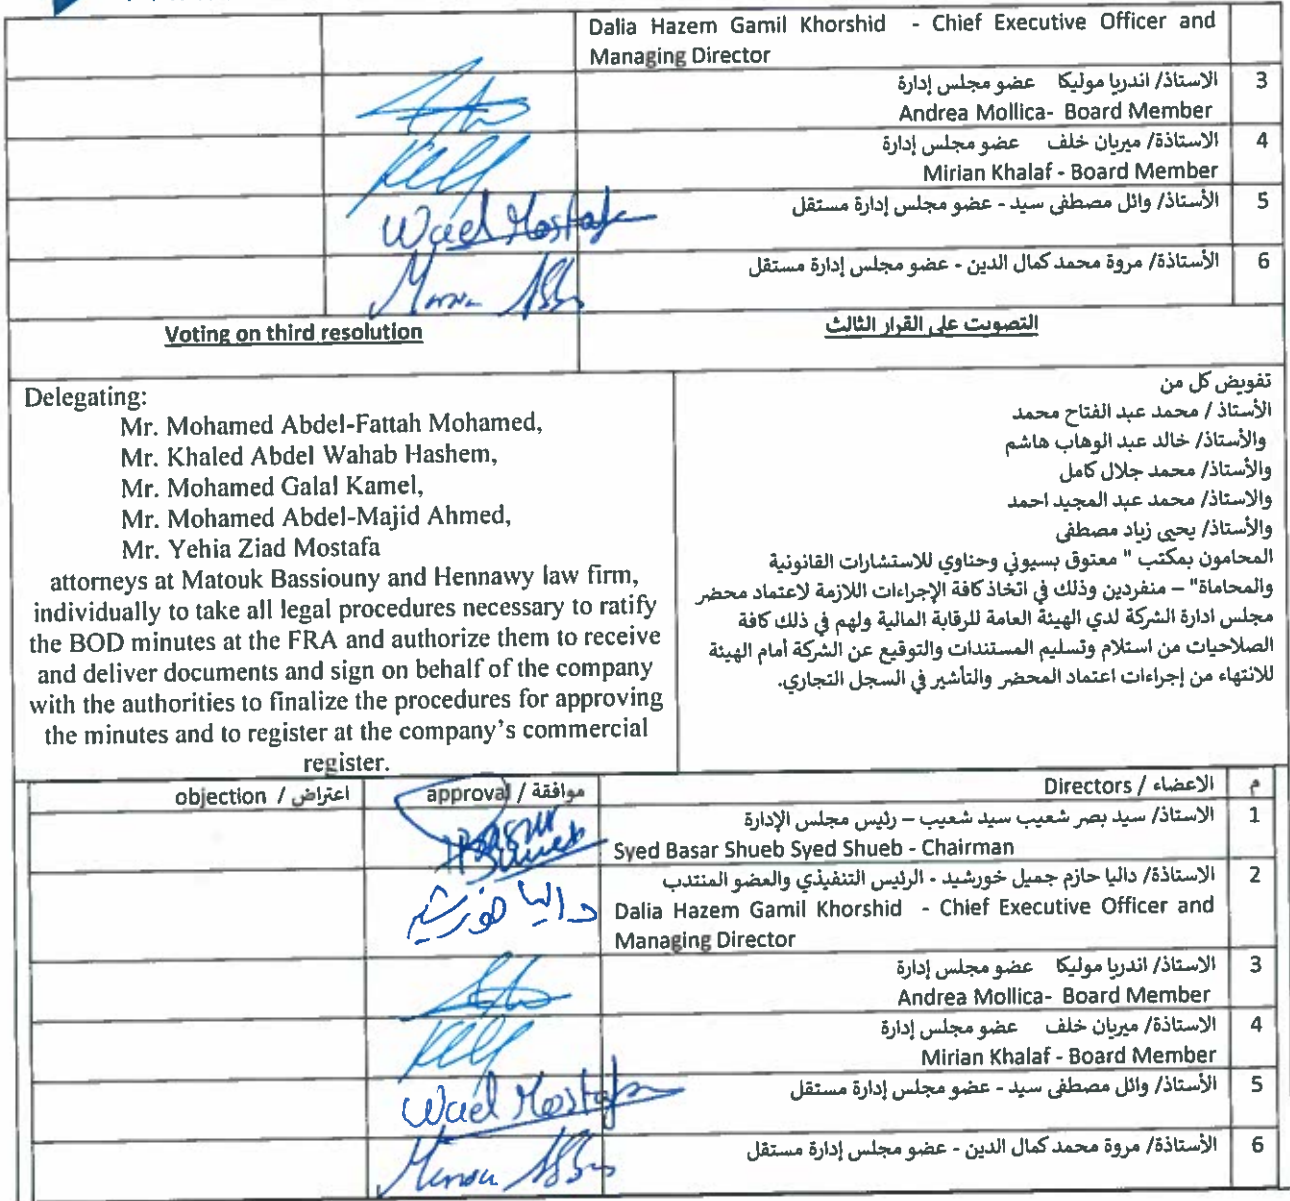 Dalia Hazem Gamil Khorshid - Chief Executive Officer and
Managing Director
3
الاستاذ/ اندريا موليكا عضو مجلس إدارة
Andrea Mollica- Board Member
4
الاستاذة/ ميريان خلف عضو مجلس إدارة
Mirian Khalaf - Board Member
5
الأستاذ/ وائل مصطفى سيد - عضو مجلس إدارة مستقل
Wael Mostafa
6
الأستاذة/ مروة محمد كمال الدين - عضو مجلس إدارة مستقل
Voting on third resolution
التصويت على القرار الثالث
Delegating:
Mr. Mohamed Abdel-Fattah Mohamed,
Mr. Khaled Abdel Wahab Hashem,
Mr. Mohamed Galal Kamel,
Mr. Mohamed Abdel-Majid Ahmed,
Mr. Yehia Ziad Mostafa
attorneys at Matouk Bassiouny and Hennawy law firm,
individually to take all legal procedures necessary to ratify
the BOD minutes at the FRA and authorize them to receive
and deliver documents and sign on behalf of the company
with the authorities to finalize the procedures for approving
the minutes and to register at the company's commercial
register.
تفويض كل من
الأستاذ / محمد عبد الفتاح محمد
والأستاذ/ خالد عبد الوهاب هاشم
والأستاذ/ محمد جلال كامل
والاستاذ/ محمد عبد المجيد احمد
والأستاذ/ يحيى زياد مصطفى
المحامون بمكتب " معتوق بسيوني وحناوي للاستشارات القانونية
والمحاماة" – منفردين وذلك في اتخاذ كافة الإجراءات اللازمة لاعتماد محضر
مجلس ادارة الشركة لدي الهيئة العامة للرقابة المالية ولهم في ذلك كافة
الصلاحيات من استلام وتسليم المستندات والتوقيع عن الشركة أمام الهيئة
للانتهاء من إجراءات اعتماد المحضر والتأشير في السجل التجاري.
م
الاعضاء / Directors
موافقة / approval
اعتراض / objection
1
الاستاذ/ سيد بصر شعيب سيد شعيب – رئيس مجلس الإدارة
Syed Basar Shueb Syed Shueb - Chairman
Basar Shueb
2
الاستاذة/ داليا حازم جميل خورشيد - الرئيس التنفيذي والعضو المنتدب
Dalia Hazem Gamil Khorshid - Chief Executive Officer and
Managing Director
داليا خورشيد
3
الاستاذ/ اندريا موليكا عضو مجلس إدارة
Andrea Mollica- Board Member
4
الاستاذة/ ميريان خلف عضو مجلس إدارة
Mirian Khalaf - Board Member
5
الأستاذ/ وائل مصطفى سيد - عضو مجلس إدارة مستقل
Wael Mostafa
6
الأستاذة/ مروة محمد كمال الدين - عضو مجلس إدارة مستقل